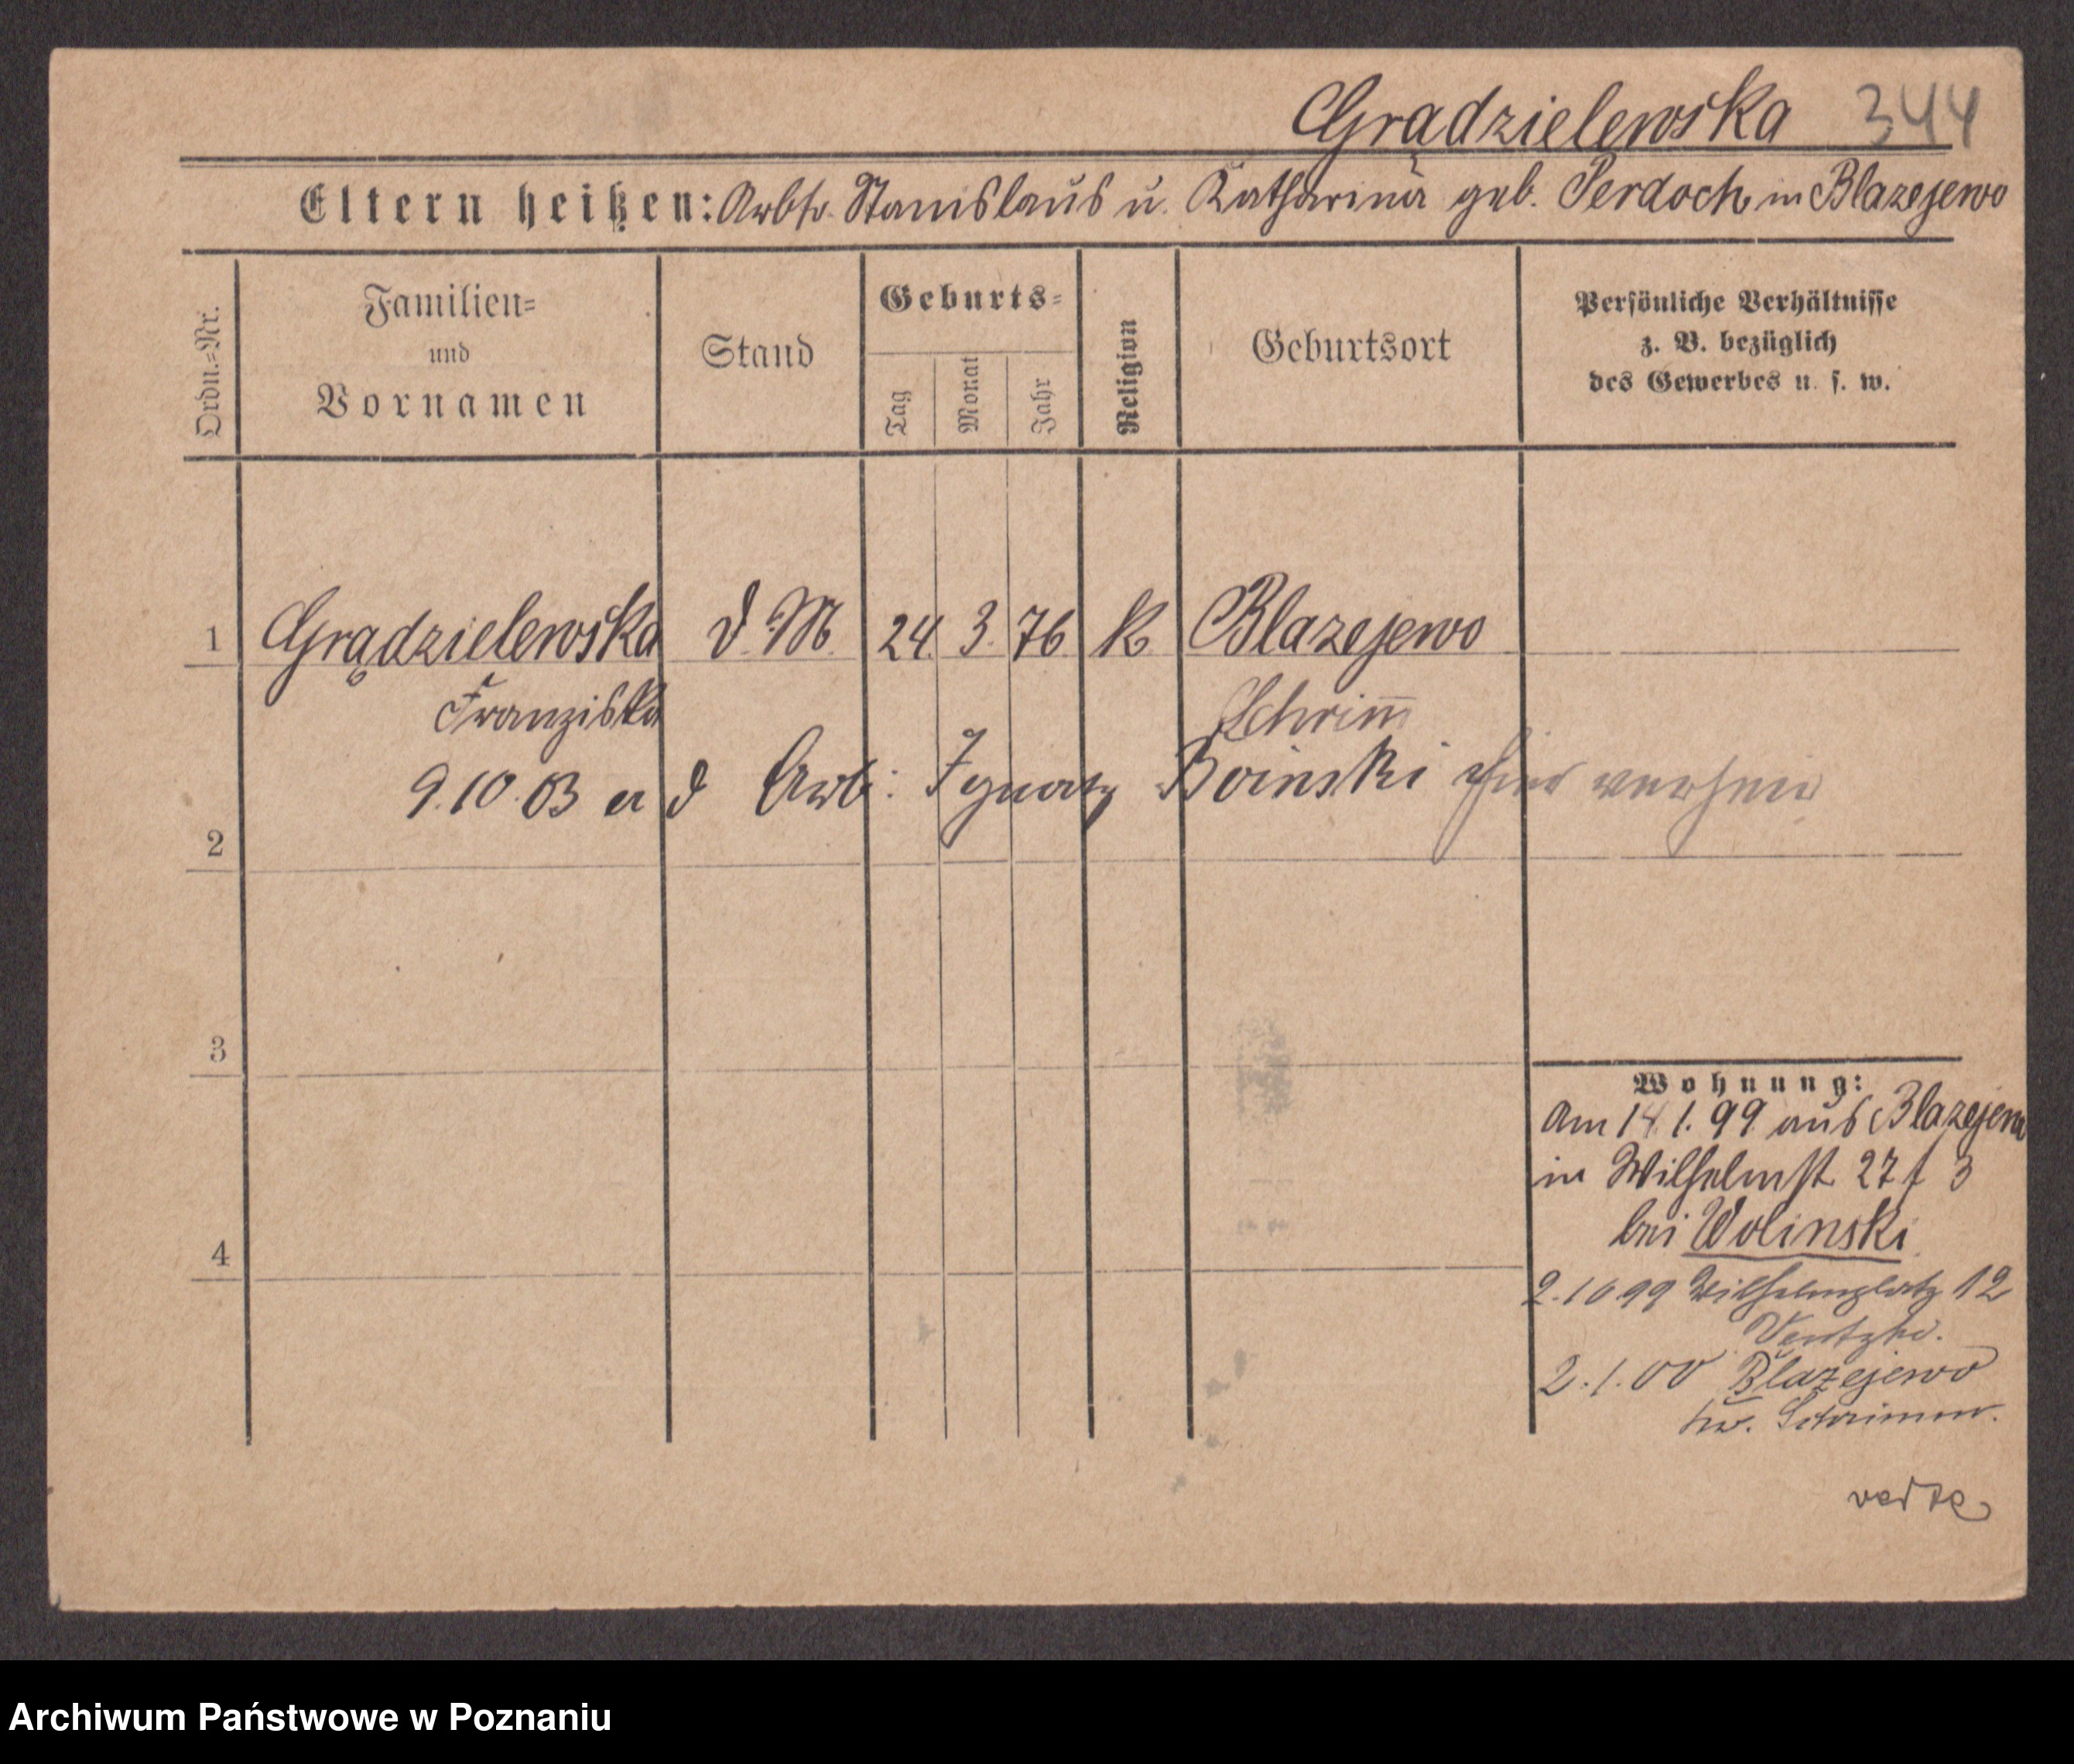 Grądzielewska 344
Eltern heißen: Arbtr. Stanislaus u. Katharina geb. Perdoch in Blazejewo
Ordn.=Nr.
Familien=
und
Vornamen
Stand
Geburts=
Tag
Monat
Jahr
Religion
Geburtsort
Persönliche Verhältnisse
z. B. bezüglich
des Gewerbes u. s. w.
1 Grądzielewska d. M. 24. 3. 76. K. Blazejewo
Franziska Schrim̅
9.10.03 an d Arb: Ignatz Boinski hier verheir
2
3
4
Wohnung:
Am 14.1.99 aus Blazejewo
in Wilhelmst. 27 f 3
bei Wolinski
2.10 99 Wilhelmplatz 12
2.1.00 Blazejewo
Kr. Schrimm.
verte
Archiwum Państwowe w Poznaniu